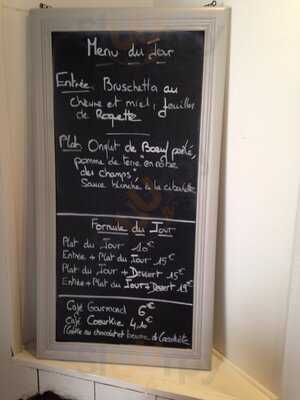 Menu du Jour
Entrée: Bruschetta au
chèvre et miel, feuilles
de Roquette
Plat: Onglet de Boeuf poêlé,
pomme de terre "en robe
des champs"
Sauce blanche à la ciboulette
Formule du Jour
Plat du Jour 10€
Entrée + Plat du Jour 15€
Plat du Jour + Dessert 15€
Entrée + Plat du Jour + Dessert 19€
Café Gourmand 6€
Café Cookie 4,10€
(Cookie au chocolat et beurre de Cacahuète